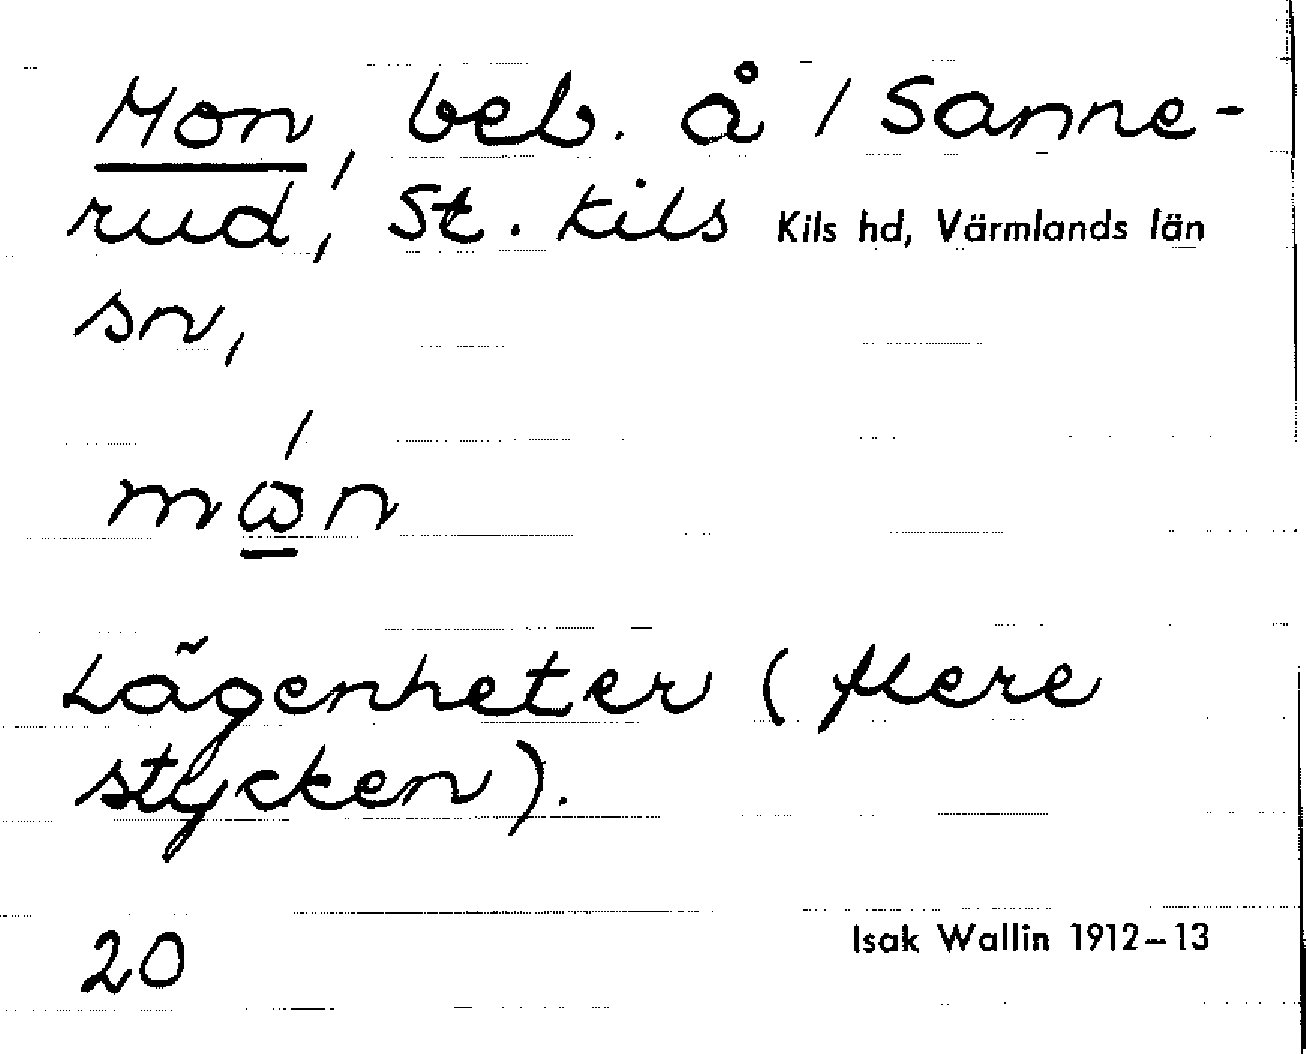 Mon, beb. å 1 Sanne-
rud, St. Kils Kils hd, Värmlands län
sn,
mώ̲n
Lägenheter (flere
stycken).
20
Isak Wallin 1912–13